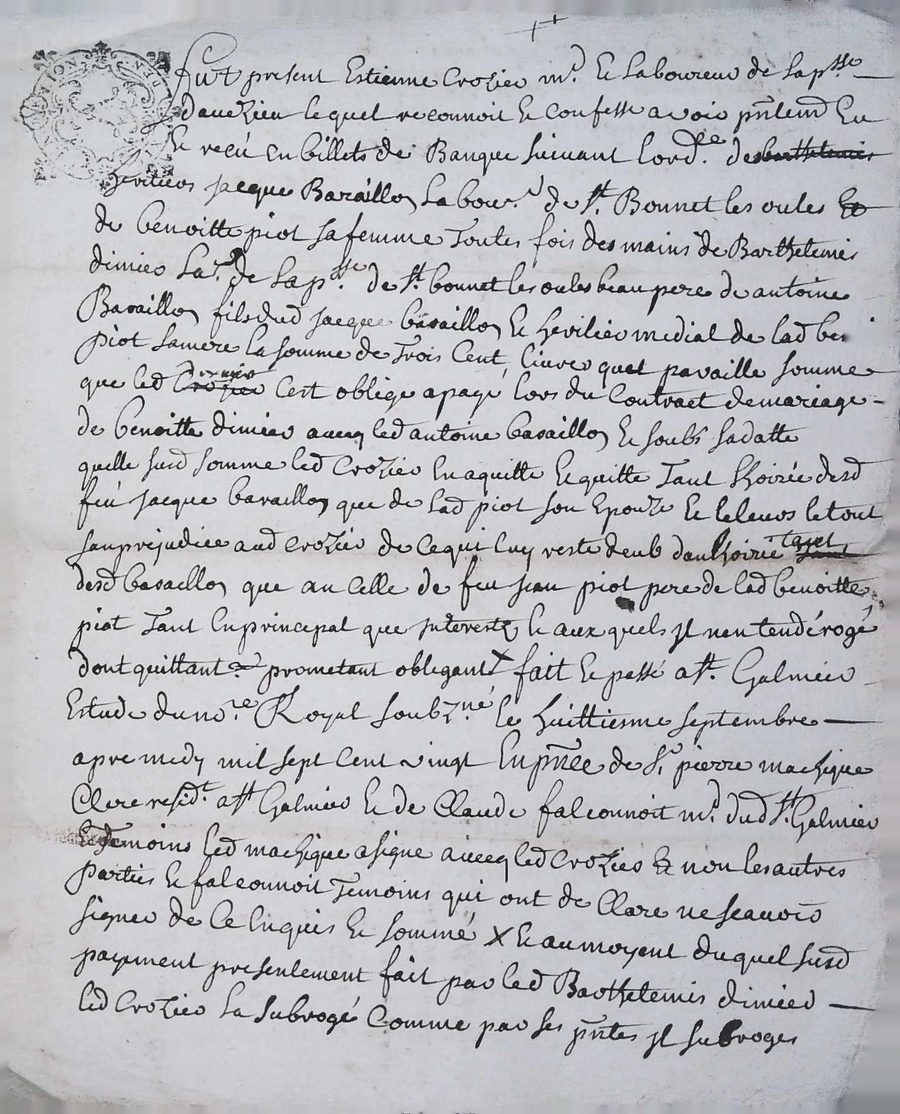 fut present Estienne Crozier md. et laboureur de la psse
dauezieu lequel reconnoit et confesse avoir pntemt Eu
et reçu en billets de Banque suivant lordre. des barthelemis
heritiers jacque Baraillon labour. de St. Bonnet les oules Et
de benoitte piot sa femme toutes fois des mains de Barthelemis
dimier lar. de la psse. de St. bonnet les oules beau pere de antoine
Baraillon fils dud jacque baraillon et heritier medial de lad ben
piot sa mere la somme de trois Cent livre quel pavaille somme
que led Crozier dimier Cest obligé a payé lors du Contract de mariage
de benoitte dimier avecq led antoine baraillon et soubs sa datte
quelle susd somme led Crozier En aquitte et quitte tant lhoirée desd
feu jacque baraillon que de lad piot son Epouze et le tout
sans prejudice aud Crozier de ce qui luy reste deub dan lhoirie tant tant
desd baraillon que an celle de feu jean piot pere de lad benoitte
piot tant En principal que interests et aux quels jl nentend érogé
dont quittant &a prometant obligant X fait et passé a St. Galmier
Estude du nore Royal soubzné. le huittieme septembre
apre medy mil sept cent vingt En pnce de Sr pierre machique
Clerc residt. a St Galmier et de Claude falconnoit md. dud St. Galmier
temoins led machique a signé avecq led Crozier Et non les autres
parties et falconnoit temoins qui ont de Clare ne scavoir
signer de ce Enquis et sommé X et au moyent du quel susd
payement presentement fait par led Barthelemis dimier
led Crozier la subrogé Comme par ses pntes jl subroges